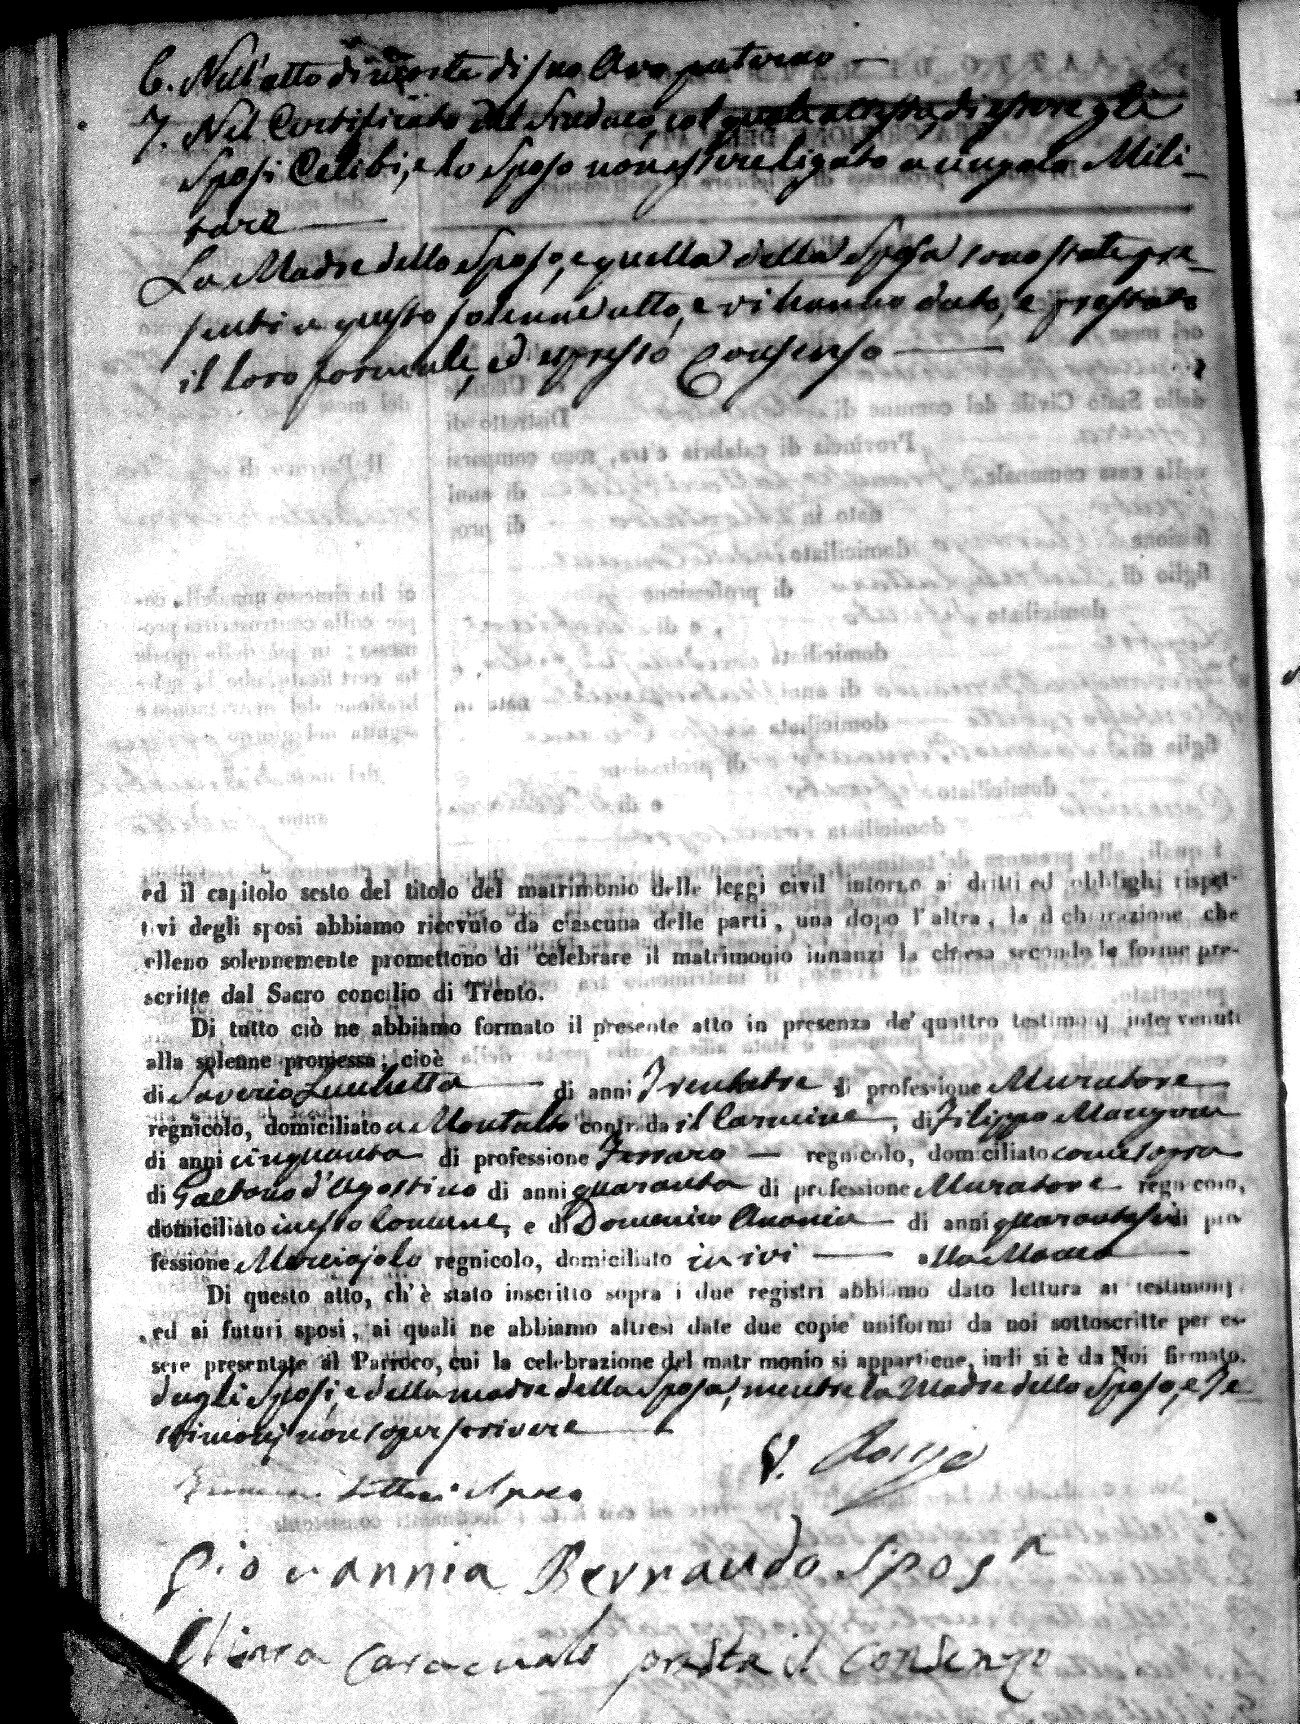 6. Nell'atto di morte di suo Avo paterno —
7. Nel Certificato del Sindaco, col quale attesta, di essere gli
Sposi Celibi, e lo Sposo non essere ligato a vingolo Mili-
tare —
La Madre dello Sposo, e quella della Sposa sono state pre-
senti a questo solenne atto, e vi hanno dato, e prestato
il loro formale, ed espresso Consenso —
ed il capitolo sesto del titolo del matrimonio delle leggi civil intorno ai dritti ed obblighi rispet-
tivi degli sposi abbiamo ricevuto da ciascuna delle parti, una dopo l'altra, la dichiarazione, che
elleno solennemente promettono di celebrare il matrimonio innanzi la chiesa secondo le forme pre-
scritte dal Sacro concilio di Trento.
Di tutto ciò ne abbiamo formato il presente atto in presenza de' quattro testimonj intervenuti
alla solenne promessa; cioè
di Saverio Luchetta — di anni Trentatre di professione Muratore
regnicolo, domiciliato a Montalto contrada il Carmine —, di Filippo Mangone
di anni cinquanta di professione Ferraro — regnicolo, domiciliato come sopra
di Gaetano d'Agostino di anni quaranta di professione Muratore regnicolo,
domiciliato in esso Comune, e di Domenico Anania — di anni quarantasei di pro-
fessione Merciajolo regnicolo, domiciliato in ivi —
Di questo atto, ch'è stato inscritto sopra i due registri abbiamo dato lettura ai testimonj
ed ai futuri sposi, ai quali ne abbiamo altresì date due copie uniformi da noi sottoscritte per es-
sere presentate al Parroco, cui la celebrazione del matrimonio si appartiene, indi si è da Noi firmato.
dagli Sposi, e della madre della Sposa, mentre la Madre dello Sposo, e Te-
stimonj non saper scrivere —
Sposo
Giovannia Bernaudo Sposa
presta il consenzo